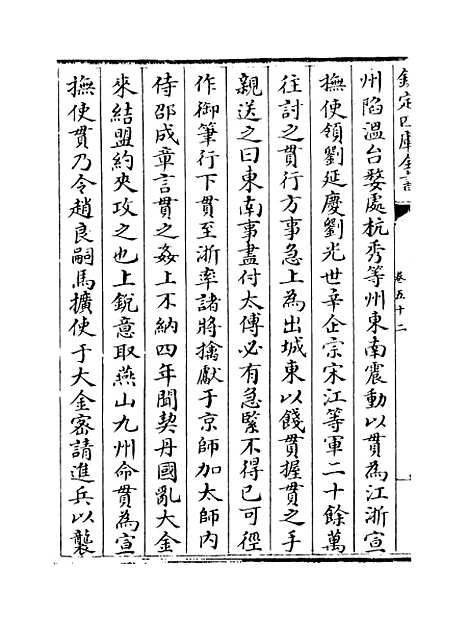 欽定四庫全書
卷五十二
州陷溫台婺處杭秀等州東南震動以貫為江浙宣
撫使領劉延慶劉光世辛企宗宋江等軍二十餘萬
往討之貫行方事急上為出城東以餞貫握貫之手
親送之曰東南事盡付太傅必有急緊不得已可徑
作御筆行下貫至浙率諸將擒獻于京師加太師內
侍邵成章言貫之姦上不納四年聞契丹國亂大金
來結盟約夾攻之也上銳意取燕山九州命貫為宣
撫使貫乃令趙良嗣馬擴使于大金宻請進兵以襲